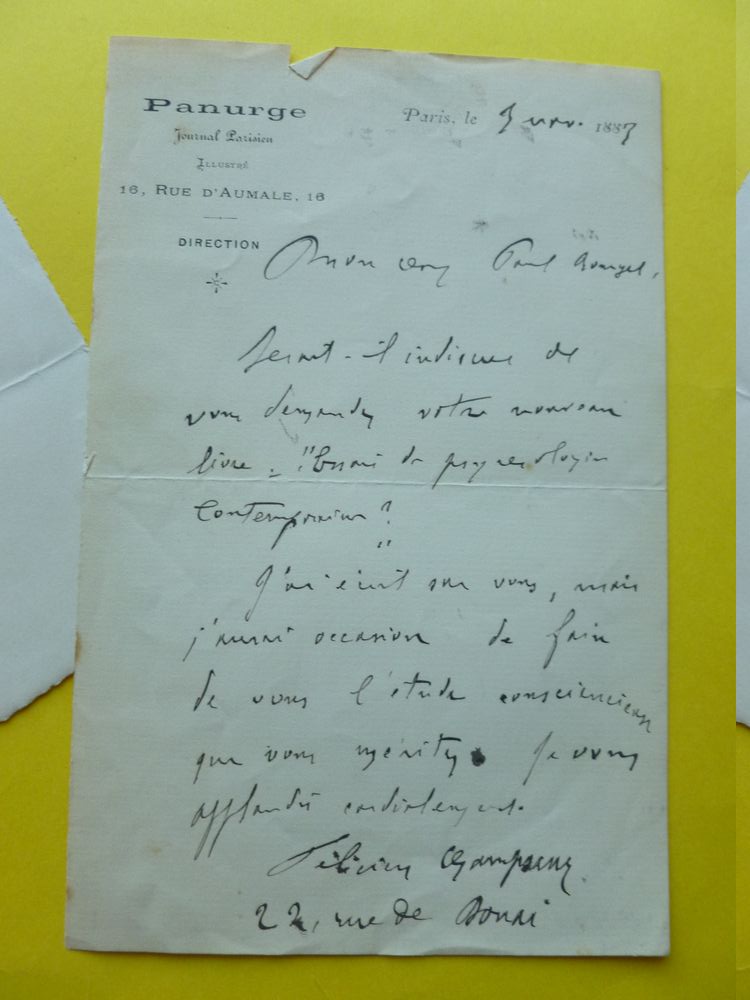 Panurge
Journal Parisien
Illustré
16, Rue d'Aumale, 16
DIRECTION
Paris, le 5 nov. 1883
Mon cher Paul Bourget,
Serait-il indiscret de
vous demander votre nouveau
livre : "Essais de psychologie
contemporaine ?
"
J'ai écrit sur vous, mais
j'aurai occasion de faire
de vous l'étude consciencieuse
que vous méritez. Je vous
applaudis cordialement.
Félicien Champsaur
22, rue de Douai